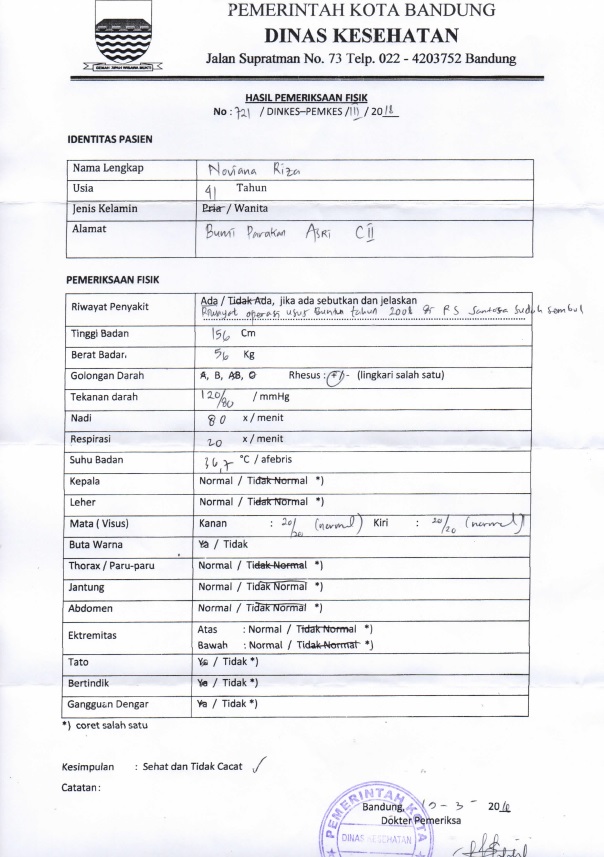 PEMERINTAH KOTA BANDUNG
DINAS KESEHATAN
Jalan Supratman No. 73 Telp. 022 - 4203752 Bandung
HASIL PEMERIKSAAN FISIK
No : 721 / DINKES–PEMKES /III / 2018
IDENTITAS PASIEN
Nama Lengkap Noviana Riza
Usia 41 Tahun
Jenis Kelamin Pria / Wanita
Alamat Bumi Parakan Asri C II
PEMERIKSAAN FISIK
Riwayat Penyakit Ada / Tidak Ada, jika ada sebutkan dan jelaskan
Riwayat operasi usus buntu tahun 2008 di RS Santosa sudah sembuh
Tinggi Badan 156 Cm
Berat Badan 56 Kg
Golongan Darah A, B, AB, O Rhesus : + / - (lingkari salah satu)
Tekanan darah 120/80 / mmHg
Nadi 80 x / menit
Respirasi 20 x / menit
Suhu Badan 36,7 °C / afebris
Kepala Normal / Tidak Normal *)
Leher Normal / Tidak Normal *)
Mata ( Visus) Kanan : 20/20 (normal) Kiri : 20/20 (normal)
Buta Warna Ya / Tidak
Thorax / Paru-paru Normal / Tidak Normal *)
Jantung Normal / Tidak Normal *)
Abdomen Normal / Tidak Normal *)
Ektremitas Atas : Normal / Tidak Normal *)
Bawah : Normal / Tidak Normal *)
Tato Ya / Tidak *)
Bertindik Ya / Tidak *)
Gangguan Dengar Ya / Tidak *)
*) coret salah satu
Kesimpulan : Sehat dan Tidak Cacat ✓
Catatan :
Bandung, 12 - 3 - 2018
Dokter Pemeriksa
PEMERINTAH KOTA
DINAS KESEHATAN